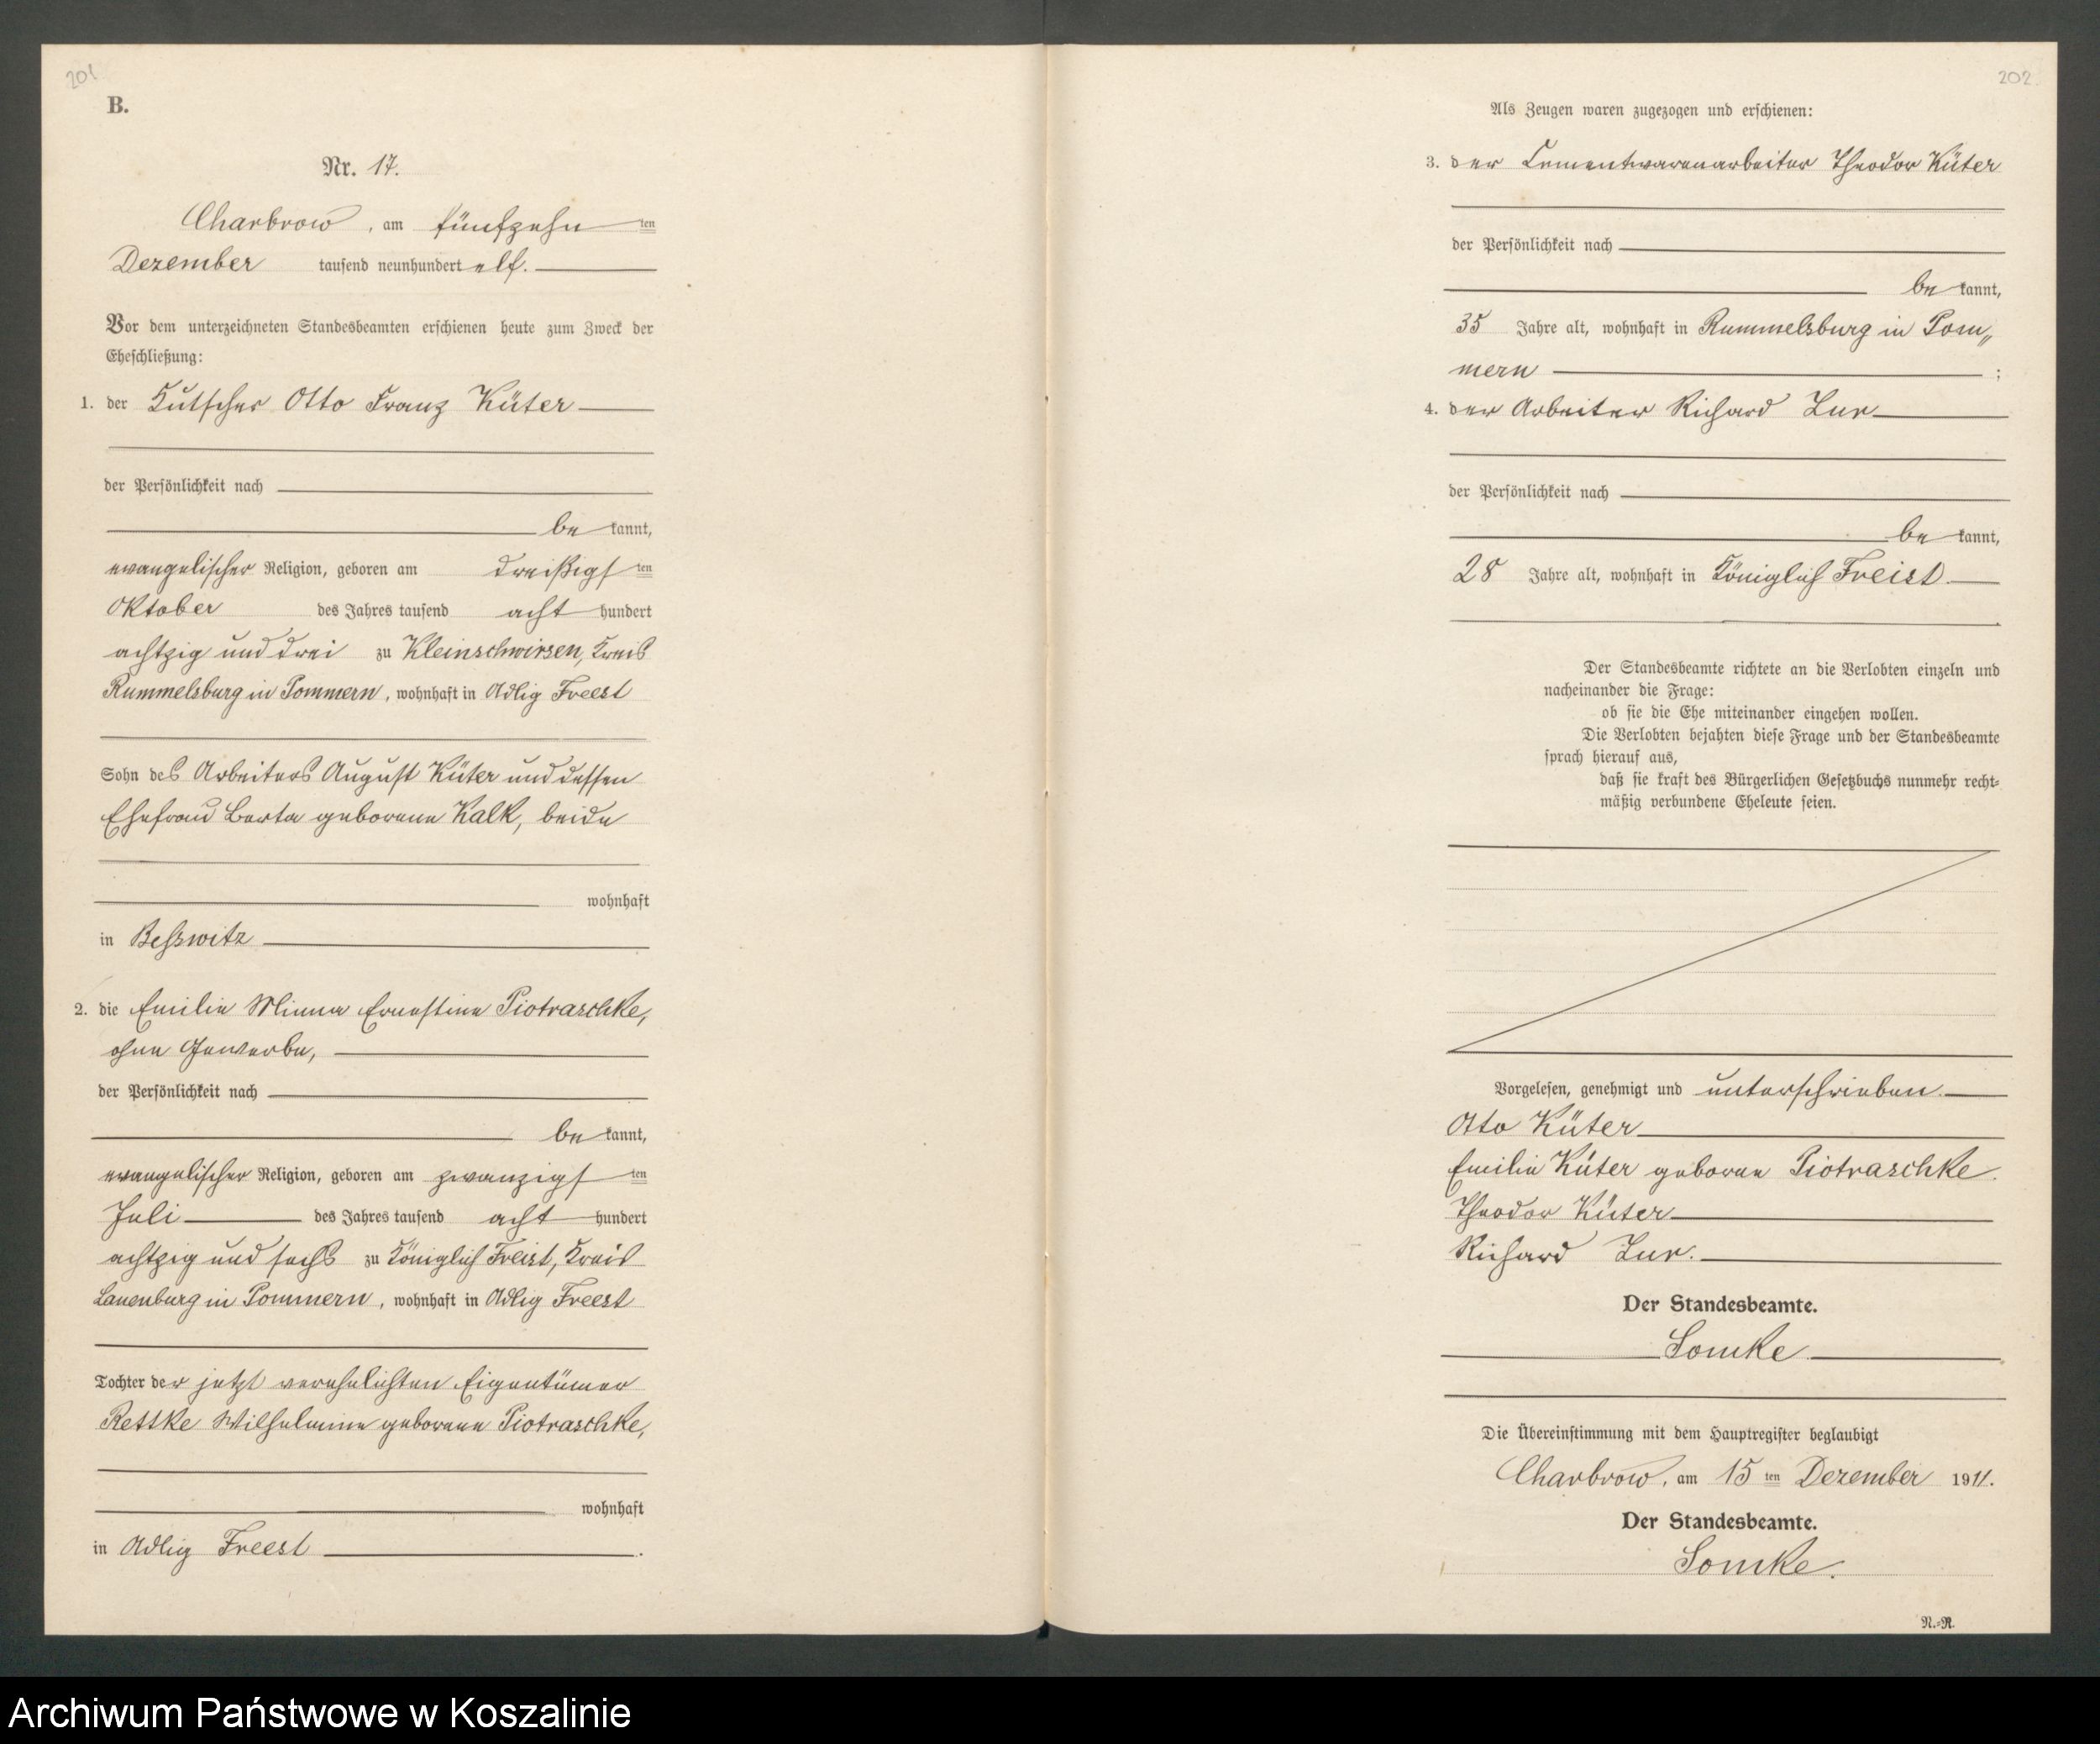 201
B.
Nr. 17.
Charbrow, am fünfzehn ten
Dezember tausend neunhundert elf.
Vor dem unterzeichneten Standesbeamten erschienen heute zum Zweck der
Eheschließung:
1. der Kutscher Otto Franz Küter
der Persönlichkeit nach
be kannt,
evangelischer Religion, geboren am dreißigs ten
Oktober des Jahres tausend acht hundert
achtzig und drei zu Kleinschwirsen, Kreis
Rummelsburg in Pommern, wohnhaft in Adlig Freest
Sohn des Arbeiters August Küter und dessen
Ehefrau Berta geborene Kalk, beide
wohnhaft
in Besswitz
2. die Emilie Minna Ernestine Piotraschke,
ohne Gewerbe,
der Persönlichkeit nach
be kannt,
evangelischer Religion, geboren am zwanzigs ten
Juli des Jahres tausend acht hundert
achtzig und sechs zu Königlich Freist, Kreis
Lauenburg in Pommern, wohnhaft in Adlig Freest
Tochter der jetzt verehelichten Eigentümer
Rettke Wilhelmine geborene Piotraschke,
wohnhaft
in Adlig Freest.
202
Als Zeugen waren zugezogen und erschienen:
3. der Cementwarenarbeiter Theodor Küter
der Persönlichkeit nach
be kannt,
35 Jahre alt, wohnhaft in Rummelsburg in Pom„
mern ;
4. der Arbeiter Richard
der Persönlichkeit nach
be kannt,
28 Jahre alt, wohnhaft in Königlich Freist.
Der Standesbeamte richtete an die Verlobten einzeln und
nacheinander die Frage:
ob sie die Ehe miteinander eingehen wollen.
Die Verlobten bejahten diese Frage und der Standesbeamte
sprach hierauf aus,
daß sie kraft des Bürgerlichen Gesetzbuchs nunmehr recht-
mäßig verbundene Eheleute seien.
Vorgelesen, genehmigt und unterschrieben.
Otto Küter
Emilie Küter geborene Piotraschke.
Theodor Küter
Richard
Der Standesbeamte.
Lomke
Die Übereinstimmung mit dem Hauptregister beglaubigt
Charbrow, am 15 ten Dezember 1911.
Der Standesbeamte.
Lomke.
N.-R.
Archiwum Państwowe w Koszalinie